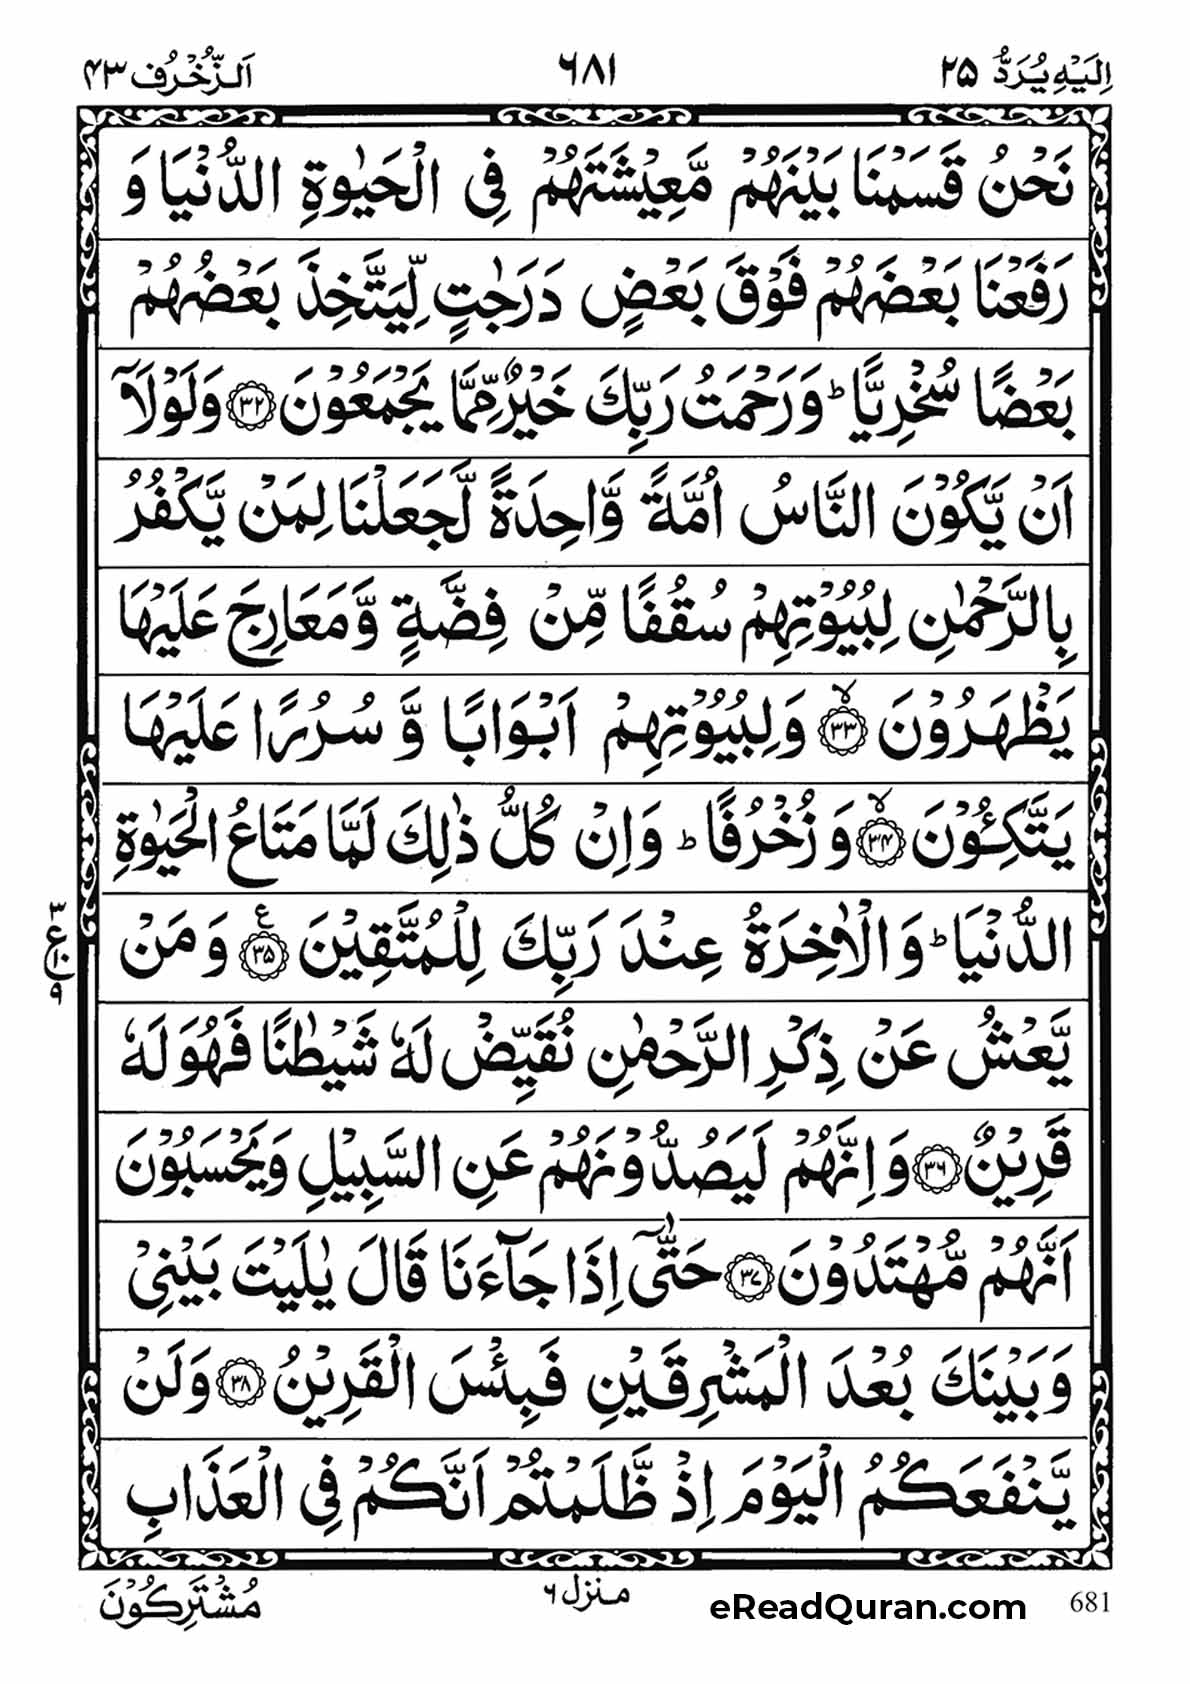 اِلَيْهِ يُرَدُّ ۲۵
۶۸۱
اَلزُّخْرُف ۴۳
نَحْنُ قَسَمْنَا بَيْنَهُمْ مَّعِيْشَتَهُمْ فِى الْحَيٰوةِ الدُّنْيَا وَ
رَفَعْنَا بَعْضَهُمْ فَوْقَ بَعْضٍ دَرَجٰتٍ لِّيَتَّخِذَ بَعْضُهُمْ
بَعْضًا سُخْرِيًّا ؕ وَرَحْمَتُ رَبِّكَ خَيْرٌ مِّمَّا يَجْمَعُوْنَ ﴿۳۲﴾ وَلَوْلَاۤ
اَنْ يَّكُوْنَ النَّاسُ اُمَّةً وَّاحِدَةً لَّجَعَلْنَا لِمَنْ يَّكْفُرُ
بِالرَّحْمٰنِ لِبُيُوْتِهِمْ سُقُفًا مِّنْ فِضَّةٍ وَّمَعَارِجَ عَلَيْهَا
يَظْهَرُوْنَ ۙ﴿۳۳﴾ وَلِبُيُوْتِهِمْ اَبْوَابًا وَّ سُرُرًا عَلَيْهَا
يَتَّكِـُٔوْنَ ۙ﴿۳۴﴾ وَ زُخْرُفًا ؕ وَاِنْ كُلُّ ذٰلِكَ لَمَّا مَتَاعُ الْحَيٰوةِ
الدُّنْيَا ؕ وَالْاٰخِرَةُ عِنْدَ رَبِّكَ لِلْمُتَّقِيْنَ ﴿۳۵﴾ ع وَمَنْ
يَّعْشُ عَنْ ذِكْرِ الرَّحْمٰنِ نُقَيِّضْ لَهٗ شَيْطٰنًا فَهُوَ لَهٗ
قَرِيْنٌ ﴿۳۶﴾ وَاِنَّهُمْ لَيَصُدُّوْنَهُمْ عَنِ السَّبِيْلِ وَيَحْسَبُوْنَ
اَنَّهُمْ مُّهْتَدُوْنَ ﴿۳۷﴾ حَتّٰٓى اِذَا جَآءَنَا قَالَ يٰلَيْتَ بَيْنِىْ
وَبَيْنَكَ بُعْدَ الْمَشْرِقَيْنِ فَبِئْسَ الْقَرِيْنُ ﴿۳۸﴾ وَلَنْ
يَّنْفَعَكُمُ الْيَوْمَ اِذْ ظَّلَمْتُمْ اَنَّكُمْ فِى الْعَذَابِ
ع
۳
۱۰
۹
مُشْتَرِكُوْنَ
منزل ۶
eReadQuran.com
681